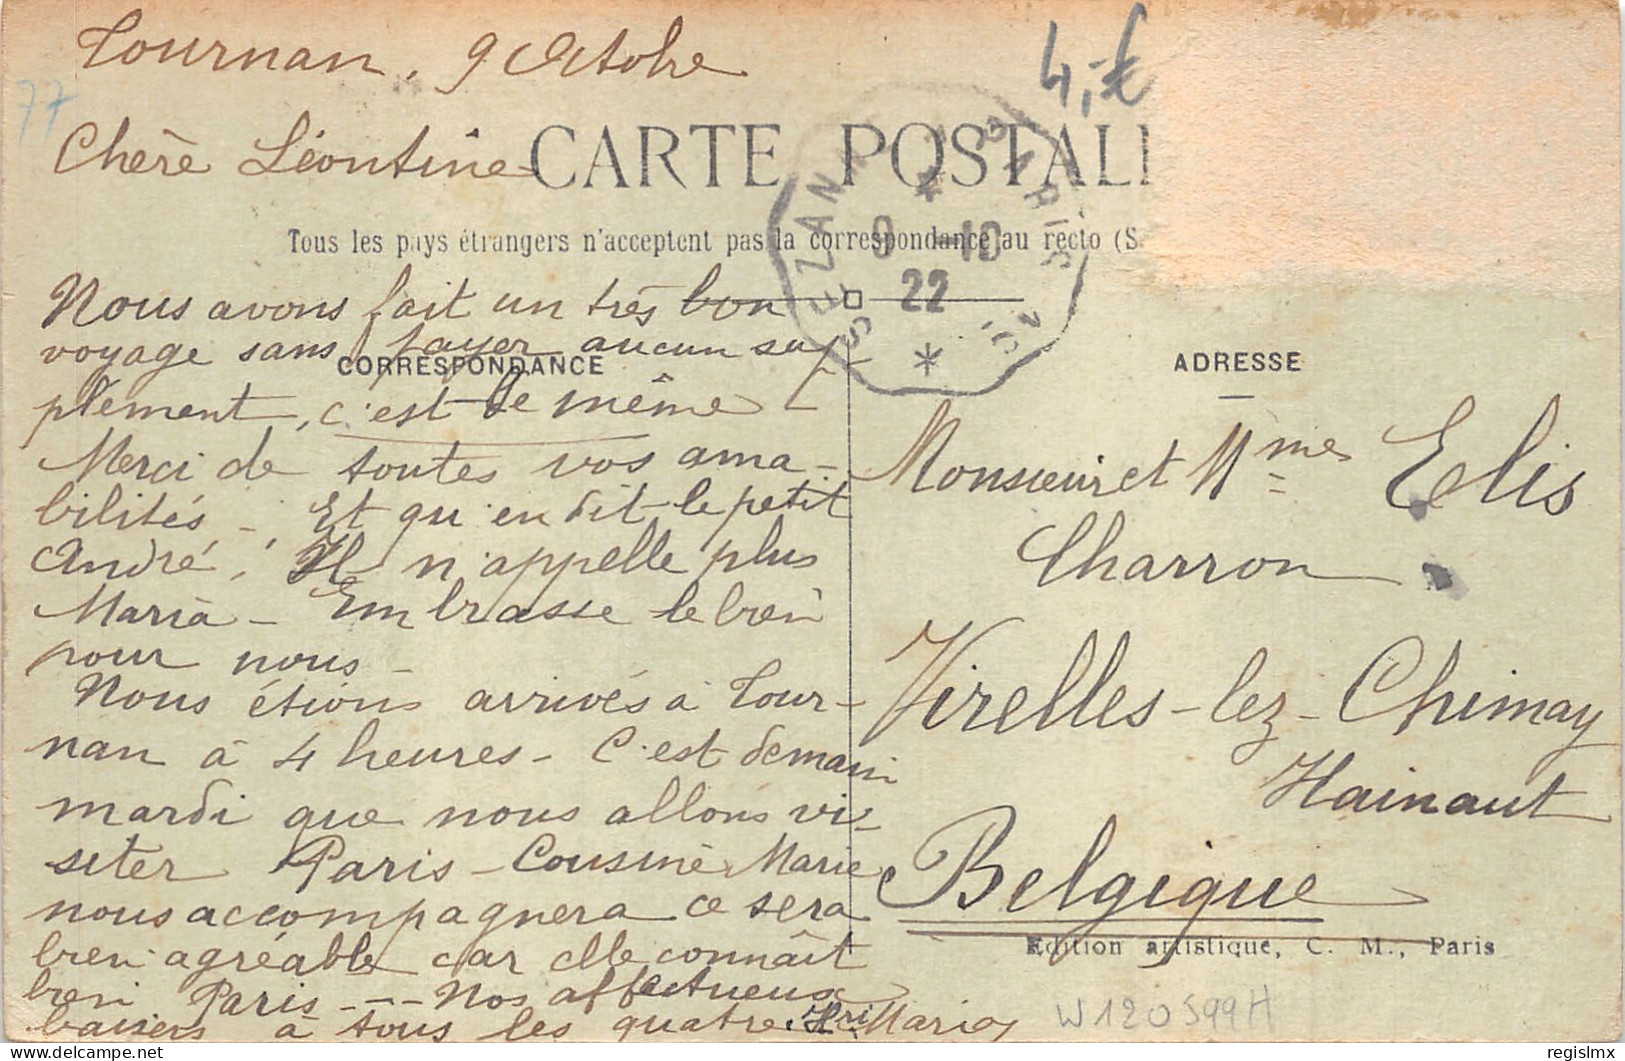 Tournan, 9 Octobre
4,-€
77
Chère Léontine
CARTE POSTAL
Tous les pays étrangers n'acceptent pas la correspondance au recto (S
SEZANNE A PARIS
9 -10
22
2°
Nous avons fait un très bon
voyage sans payer aucun sup-
CORRESPONDANCE
plément, c'est de même
Merci de toutes vos ama-
bilités - Et qu'en dit le petit
André, Il n'appelle plus
Maria - Embrasse le bien
pour nous -
Nous étions arrivés à Tour-
nan à 4 heures - C'est demain
mardi que nous allons vi-
siter Paris - Cousine Marie
nous accompagnera ce sera
bien agréable car elle connaît
bien Paris --- Nos affectueux
baisers à tous les quatre. Maria
ADRESSE
Monsieur et Mmes Elis
Charron
Virelles-lez-Chimay
Hainaut
Belgique
Edition artistique, C. M., Paris
W120599H
regislmx